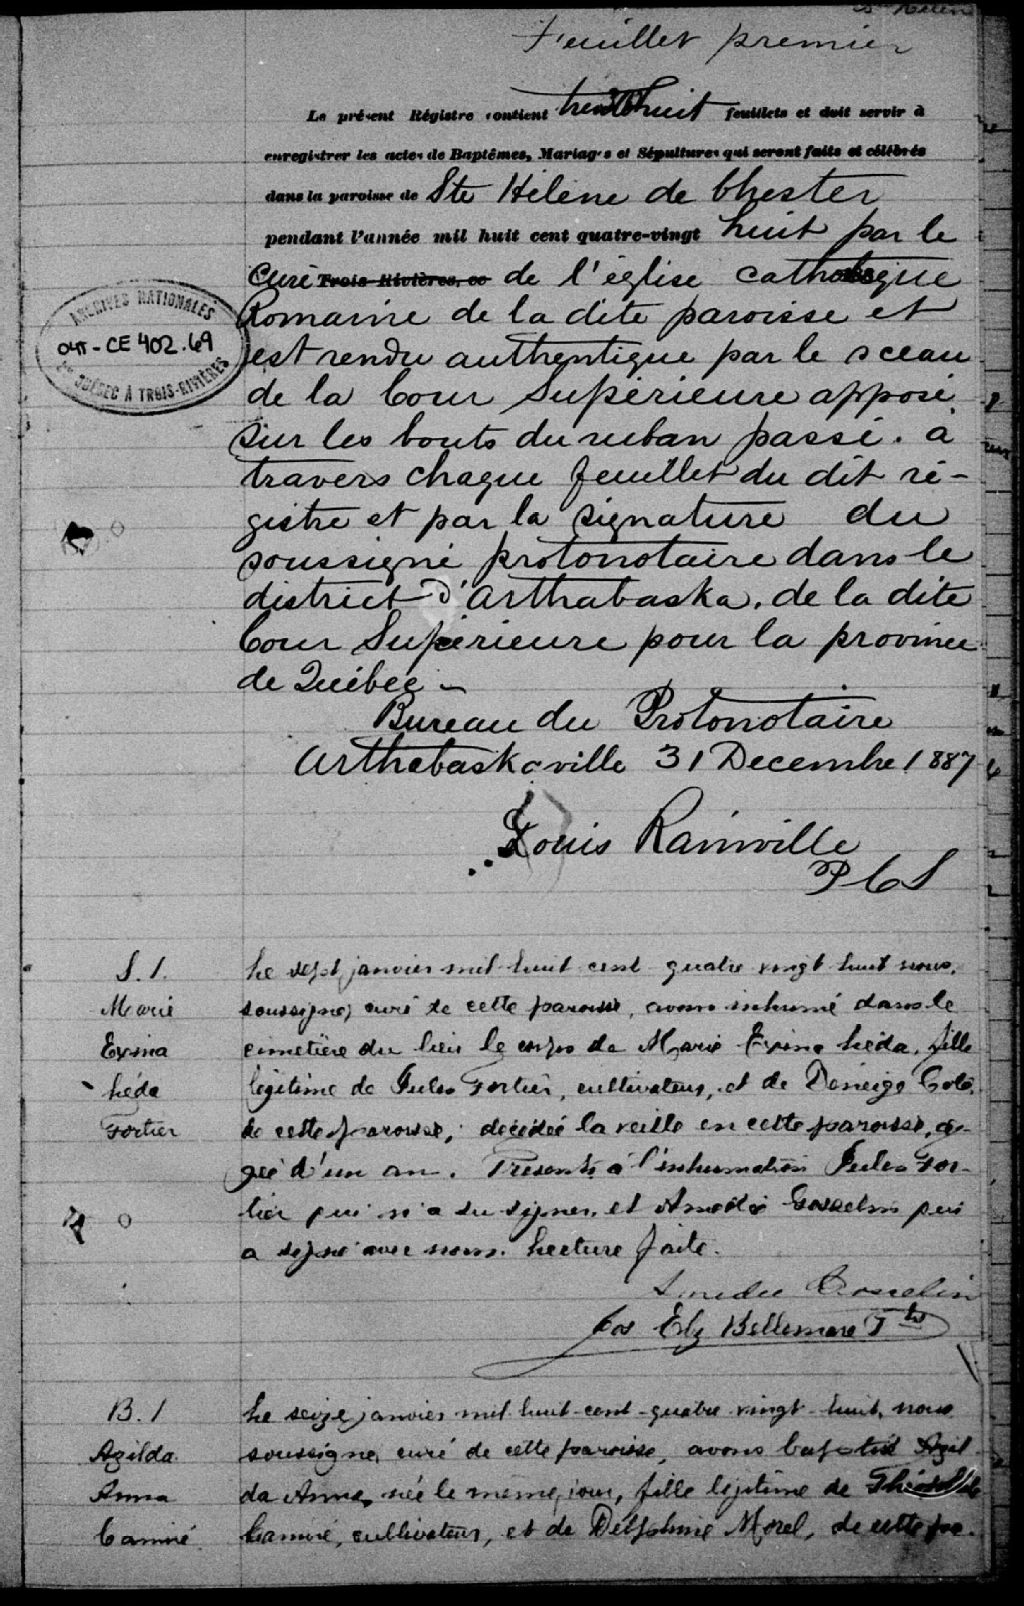 Feuillet premier
Le présent Régistre contient trente huit feuillets et doit servir à
enregistrer les actes de Baptêmes, Mariages et Sépultures qui seront faits et célébrés
dans la paroisse de Ste Hélène de Chester
pendant l'année mil huit cent quatre-vingt huit par le
Curé Trois-Rivières, ce de l'église catholique
Romaine de la dite paroisse et
est rendu authentique par le sceau
de la Cour Supérieure apposé
sur les bouts du ruban passé. a
travers chaque feuillet du dit ré-
gistre et par la signature du
soussigné protonotaire dans le
district d'Arthabaska. de la dite
Cour Supérieure pour la province
de Québec -
Bureau du Protonotaire
Arthabaskaville 31 Decembre 1887
Louis Rainville
P C S
ARCHIVES NATIONALES
04T-CE 402.69
QUÉBEC À TROIS-RIVIÈRES
S. 1.
Marie
Exina
Léda
Fortier
Le sept janvier mil huit cent quatre vingt huit nous,
soussigné, curé de cette paroisse, avons inhumé dans le
cimetière du lieu le corps de Marie Exina Léda, fille
légitime de Jules Fortier, cultivateur, et de Déneige Coté,
de cette paroisse, décédée la veille en cette paroisse, a-
gée d'un an. Présents à l'inhumation Jules For-
tier qui n'a su signer, et Amédée Gosselin qui
a signé avec nous. Lecture faite.
Amedee Gosselin
Jos Elz Bellemare Ptre
B. 1
Azilda
Anna
Camiré
Le seize janvier mil huit-cent-quatre vingt-huit, nous
soussigné, curé de cette paroisse, avons baptisé Azil
da Anna, née le même jour, fille légitime de
Camiré, cultivateur, et de Delphine Morel, de cette pa-